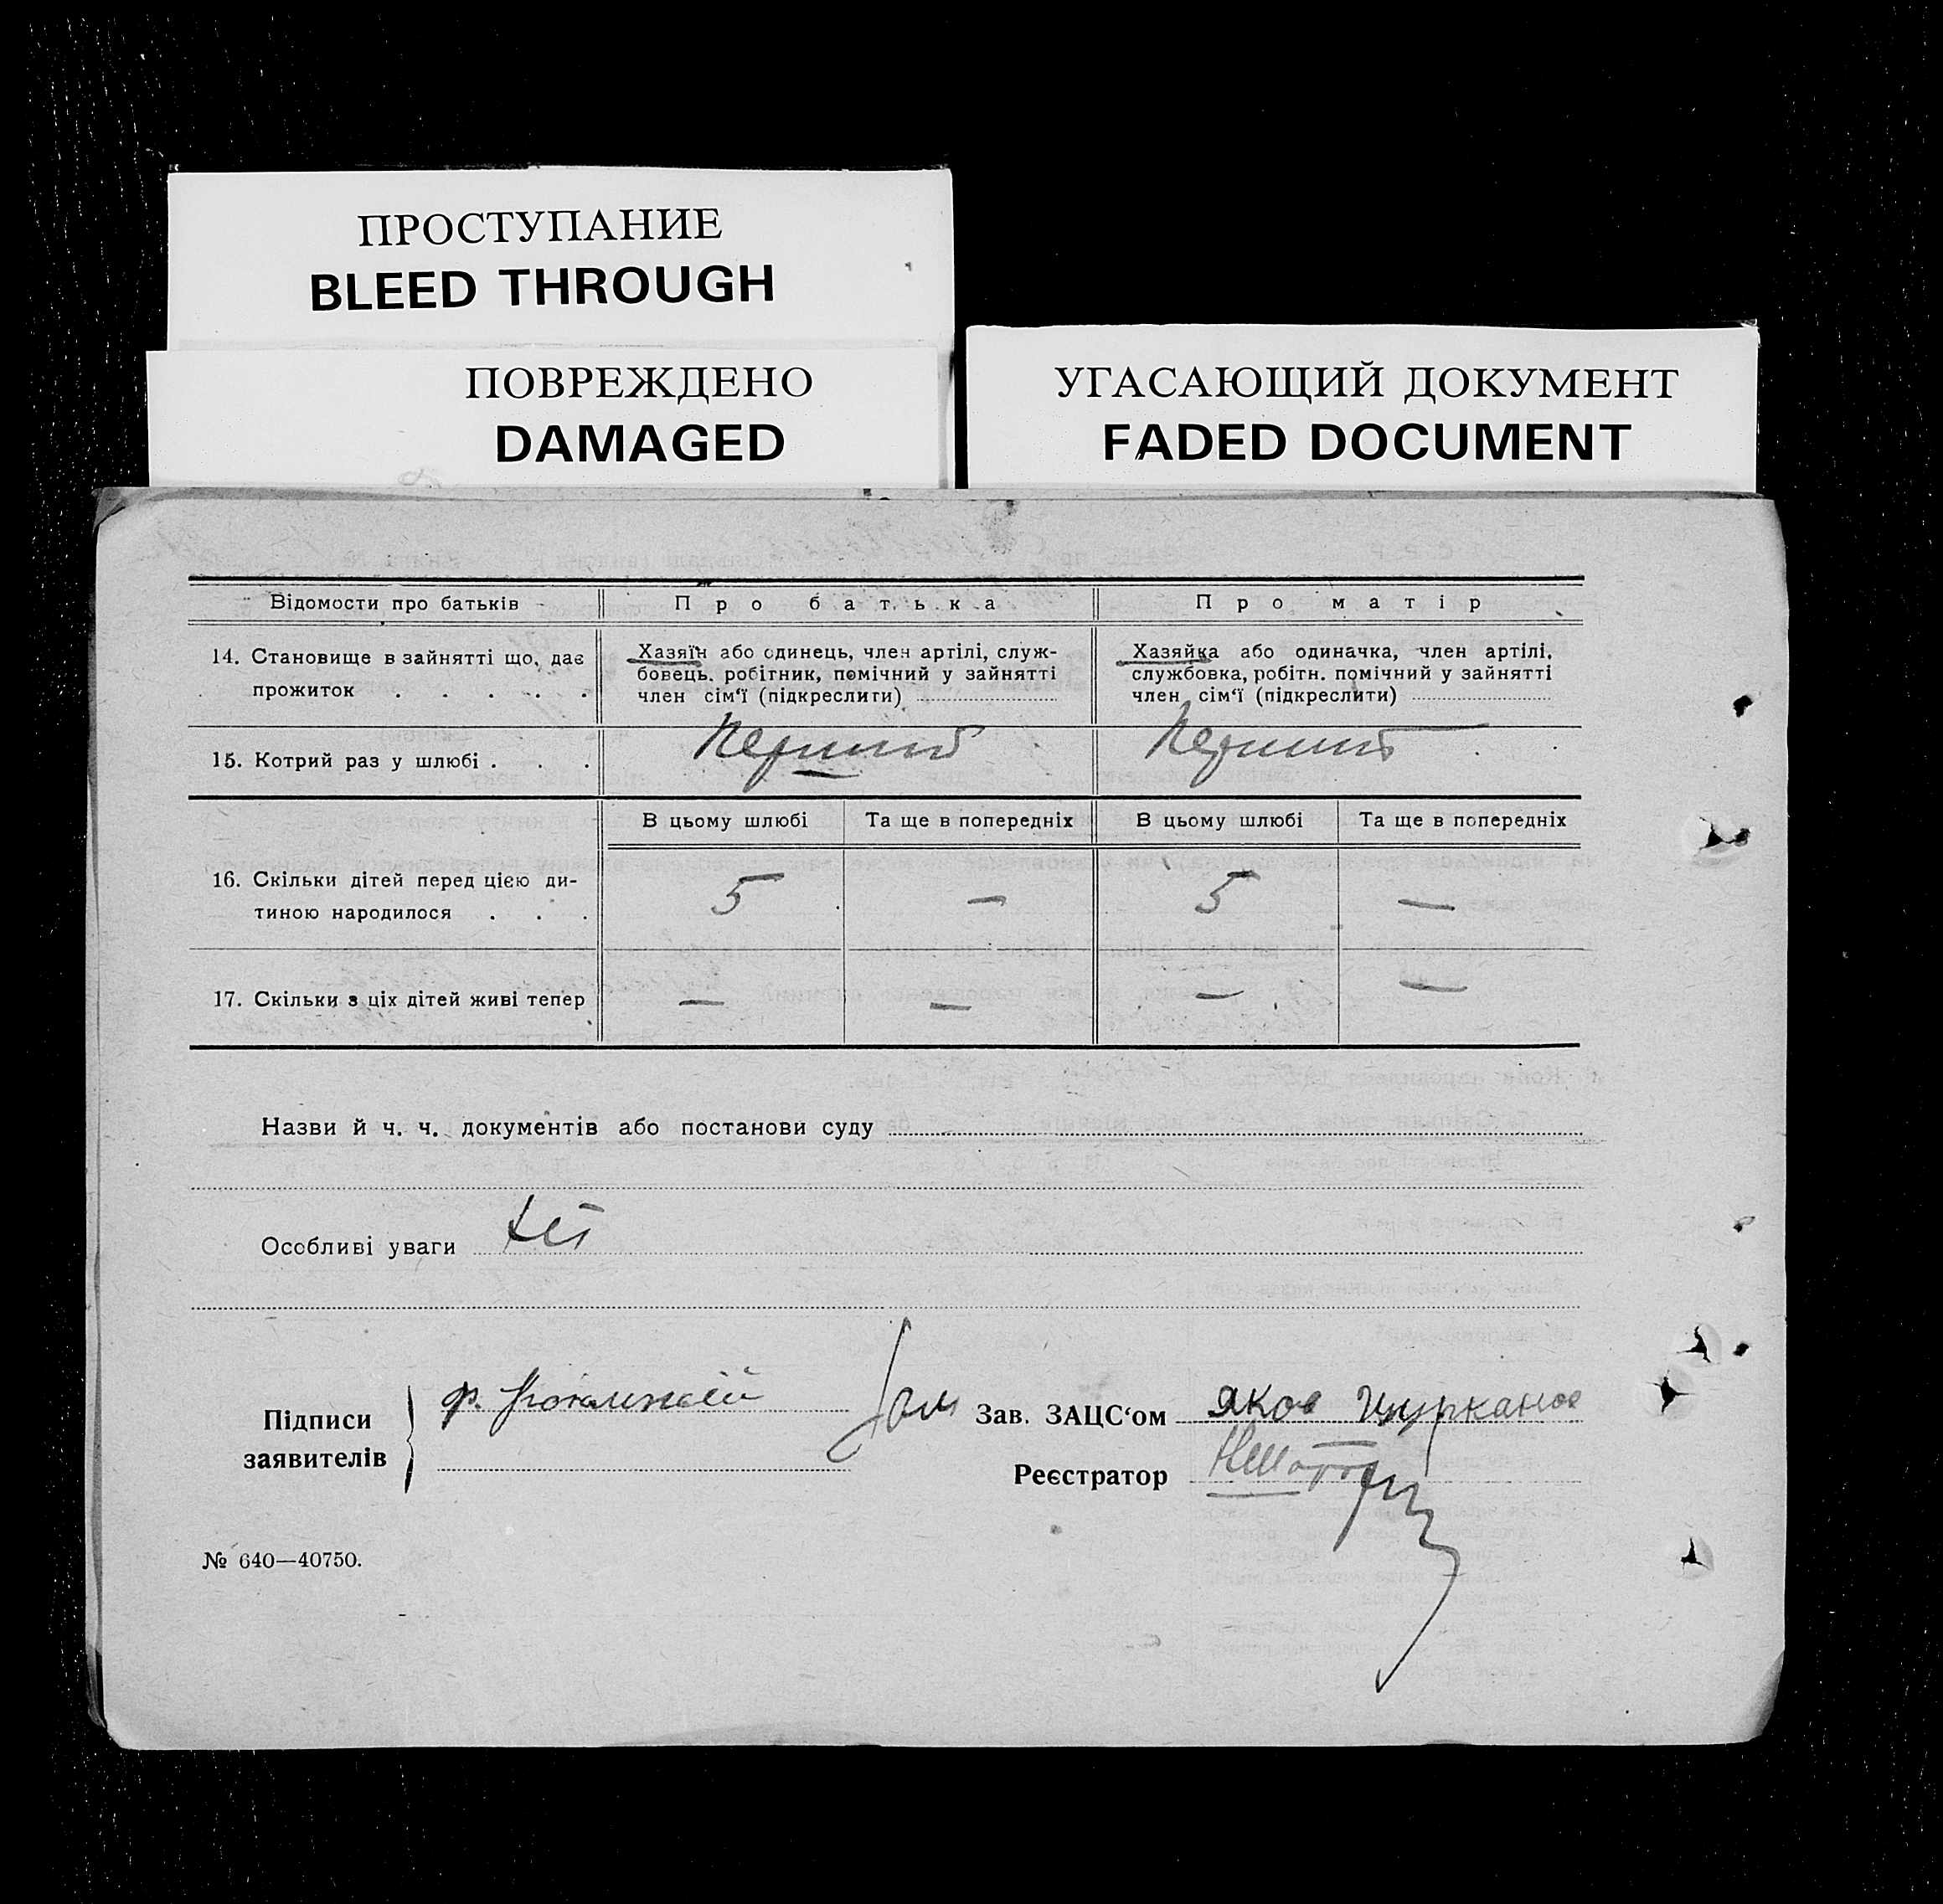 ПРОСТУПАНИЕ
BLEED THROUGH
ПОВРЕЖДЕНО
DAMAGED
УГАСАЮЩИЙ ДОКУМЕНТ
FADED DOCUMENT
Відомости про батьків
Про батька
Про матір
14. Становище в зайнятті що, дає
прожиток . . . . .
Хазяїн або одинець, член артілі, служ-
бовець, робітник, помічний у зайнятті
член сім‘ї (підкреслити)
Хазяйка або одиначка, член артілі,
службовка, робітн. помічний у зайнятті
член сім‘ї (підкреслити)
15. Котрий раз у шлюбі . . .
Первий
Первий
В цьому шлюбі
Та ще в попередніх
В цьому шлюбі
Та ще в попередніх
16. Скільки дітей перед цією ди-
тиною народилося . . .
5
—
5
—
17. Скільки з ціх дітей живі тепер
—
—
—
—
Назви й ч. ч. документів або постанови суду
Особливі уваги
Підписи
заявителів
ф.
Зав. ЗАЦС‘ом Яков Цуркано
Реєстратор
№ 640—40750.